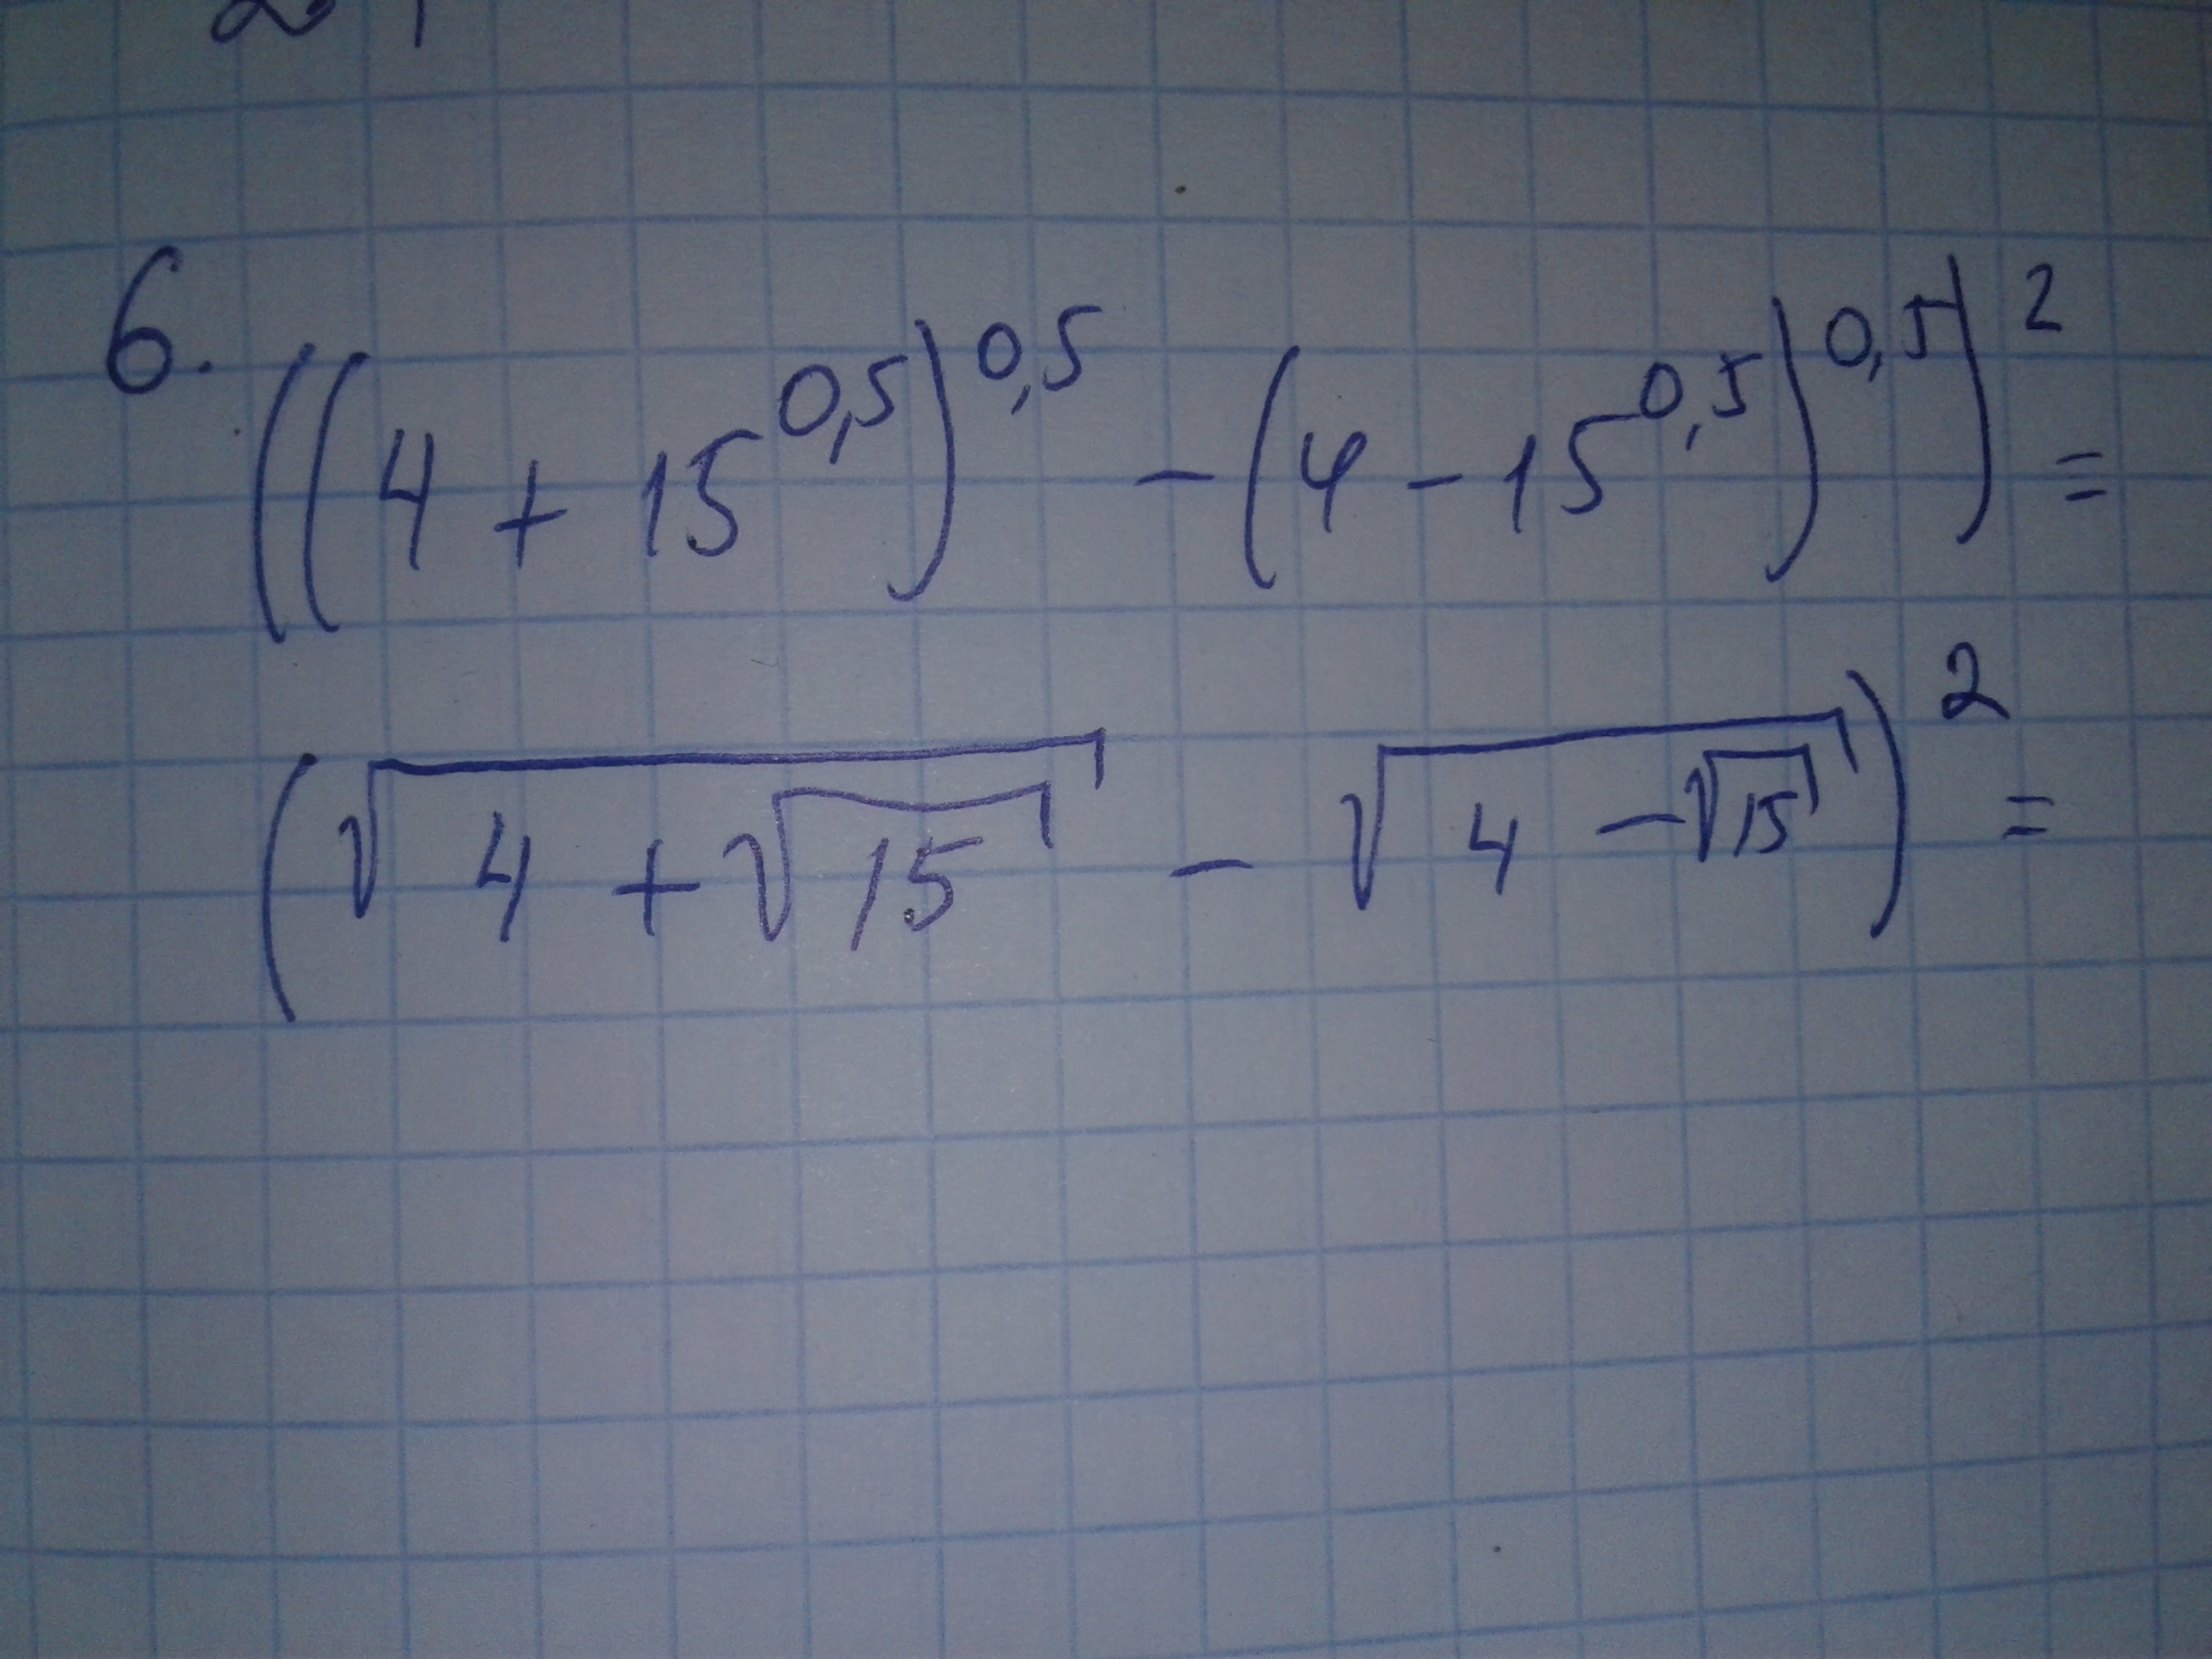 6. ((4 + 15^0,5)^0,5 - (4 - 15^0,5)^0,5)^2 =
(√(4 + √15) - √(4 - √15))^2 =